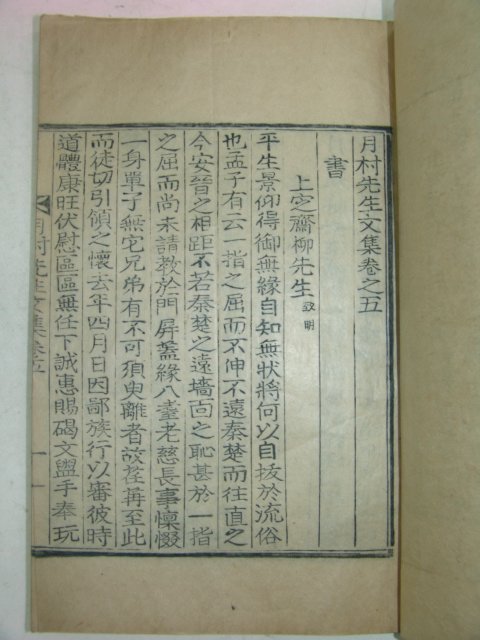 月村先生文集卷之五
書
上定齋柳先生 致明
平生景仰得御無緣自知無狀將何以自拔於流俗
也孟子有云一指之屈而不伸不遠秦楚而往直之
今安晉之相距不若秦楚之遠墻面之恥甚於一指
之屈而尚未請敎於門屛蓋緣八耋老慈長事懍惙
一身單孑無它兄弟有不可須臾離者故荏苒至此
而徒切引領之懷去年四月日因鄙族行以審彼時
道體康旺伏慰區區無任下誠惠賜碣文盥手奉玩
月村先生文集卷五
一